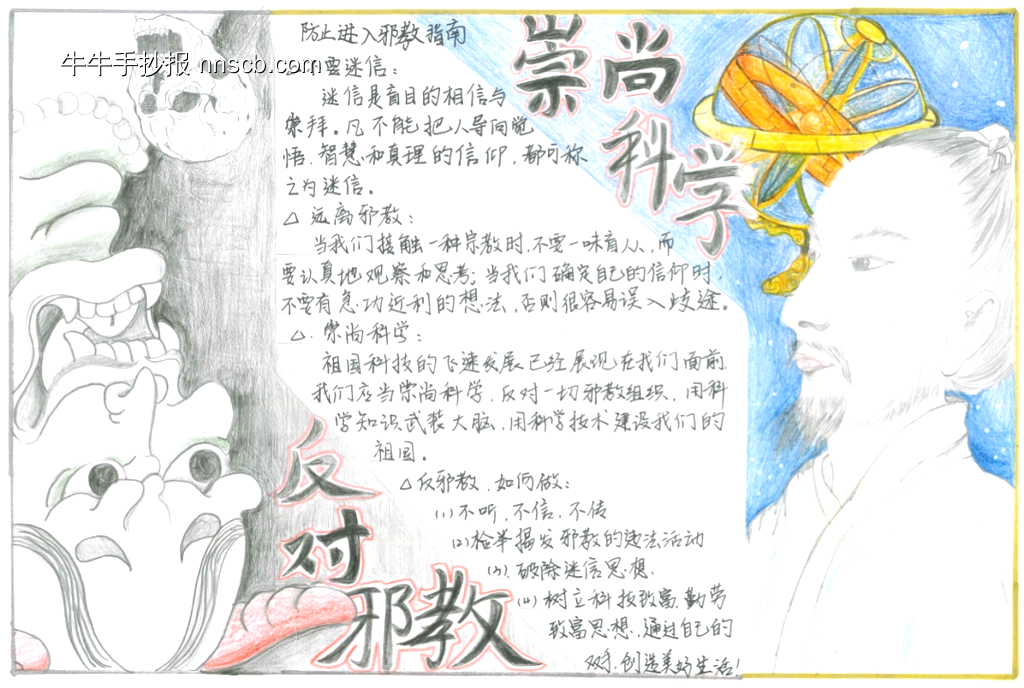 防止进入邪教指南
牛牛手抄报 nnscb.com
要迷信：
迷信是盲目的相信与
崇拜。凡不能把人导向觉
悟、智慧和真理的信仰，都可称
之为迷信。
△ 远离邪教：
当我们接触一种宗教时，不要一味盲从，而
要认真地观察和思考；当我们确定自己的信仰时，
不要有急功近利的想法，否则很容易误入歧途。
△. 崇尚科学：
祖国科技的飞速发展已经展现在我们面前
我们应当崇尚科学，反对一切邪教组织，用科
学知识武装大脑，用科学技术建设我们的
祖国。
△反邪教，如何做：
(1)不听，不信，不传
(2)检举揭发邪教的违法活动
(3).破除迷信思想.
(4)树立科技致富、勤劳
致富思想，通过自己的
双手，创造美好生活！
崇尚科学
反对邪教